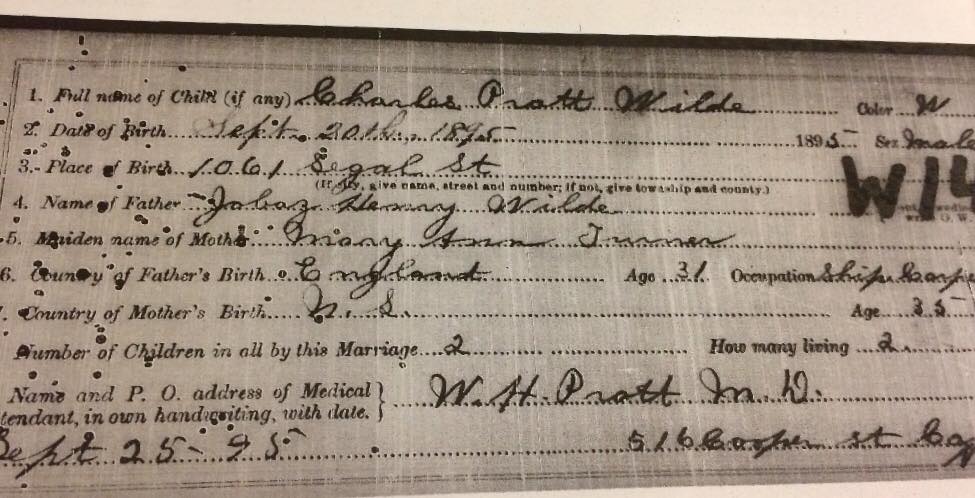 1. Full name of Child (if any) Charles Pratt Wilde Color W
2. Date of Birth Sept. 20th, 1895 1895 Sex Male
3. Place of Birth 1061 Segal St
(If city, give name, street and number; if not, give township and county.)
4. Name of Father Jabaz Henry Wilde W14
5. Maiden name of Mother Mary Ann Turner
6. Country of Father's Birth England Age 31 Occupation Ship Carpe
Country of Mother's Birth U. S. Age 35
Number of Children in all by this Marriage 2 How many living 2
Name and P. O. address of Medical
tendant, in own handwriting, with date. } W. H. Pratt M. D.
Sept 25-95 516 Cooper st Ca